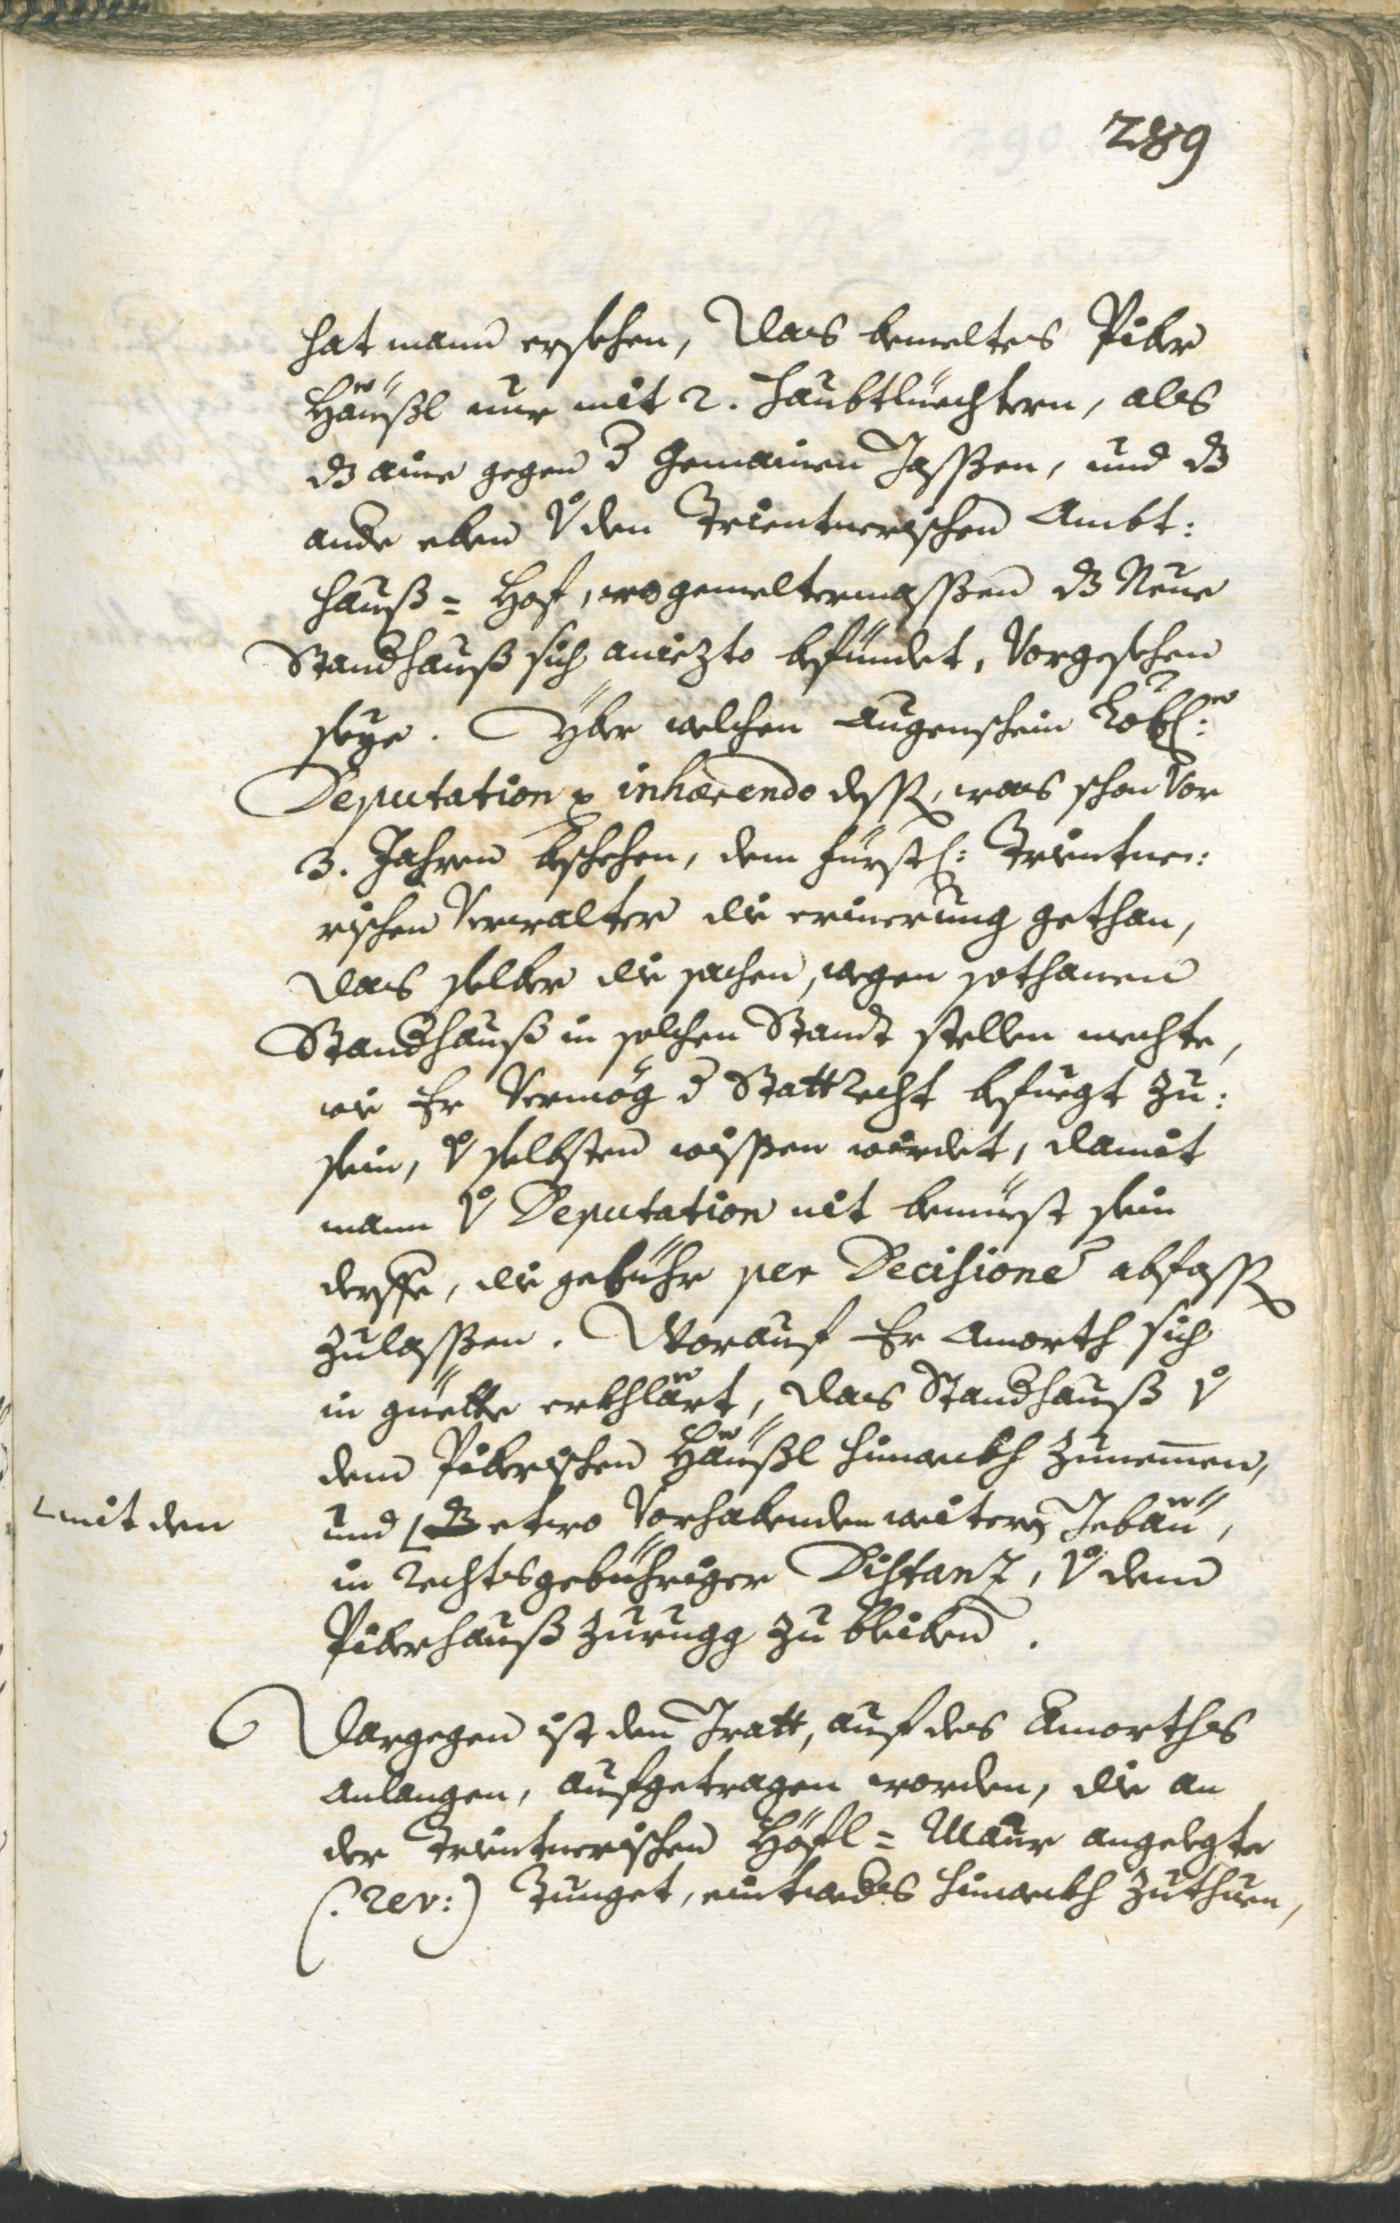 289
hat mann ersehen, Das bemeltes Piber
Häußl nur mit 2. Haubtliechtern, als
dz aine gegen d Gemainen Gassen, und dz
ande eben v den Trientnerischen Ambt:
hauß= Hof, wo gemeltermassen dz Neue
Standhauß sich aniezto befündet, Vorgesehen
seye. Yber welchen Augenschein Löbl:
Deputation p inhærendo dess, was schon Vor
3. Jahren beschehen, dem fürstl: Trientne:
rischen Verwalter die erinerung gethan,
Das selber die sachen, wegen sothanen
Standhauß in solchen Standt stellen mechte,
wie Er Vermög d Statt Recht befuegt zu:
sein, v selbsten wissen würdet, damit
mann v Deputation nit bemüest sein
derffe, die gebühr per Decisione abfass
zulassen. Worauf Er Amorth sich
in güette erkhlärt, Das Standhauß v
dem Piberischen Häußl hinwekh zunemen,
mit den
und etwo Vorhabenden weitern Gebäu,
in Rechtsgebühriger Distanz, v dem
Piberhauß zurugg zu bleiben.
Dargegen ist den Tratt, auf des Amorths
anlangen, aufgetragen worden, die an
der Trientnerischen Höfl= Maur angelegte
(: rev:) Tunget, eintweders hinwekh zuthuen,